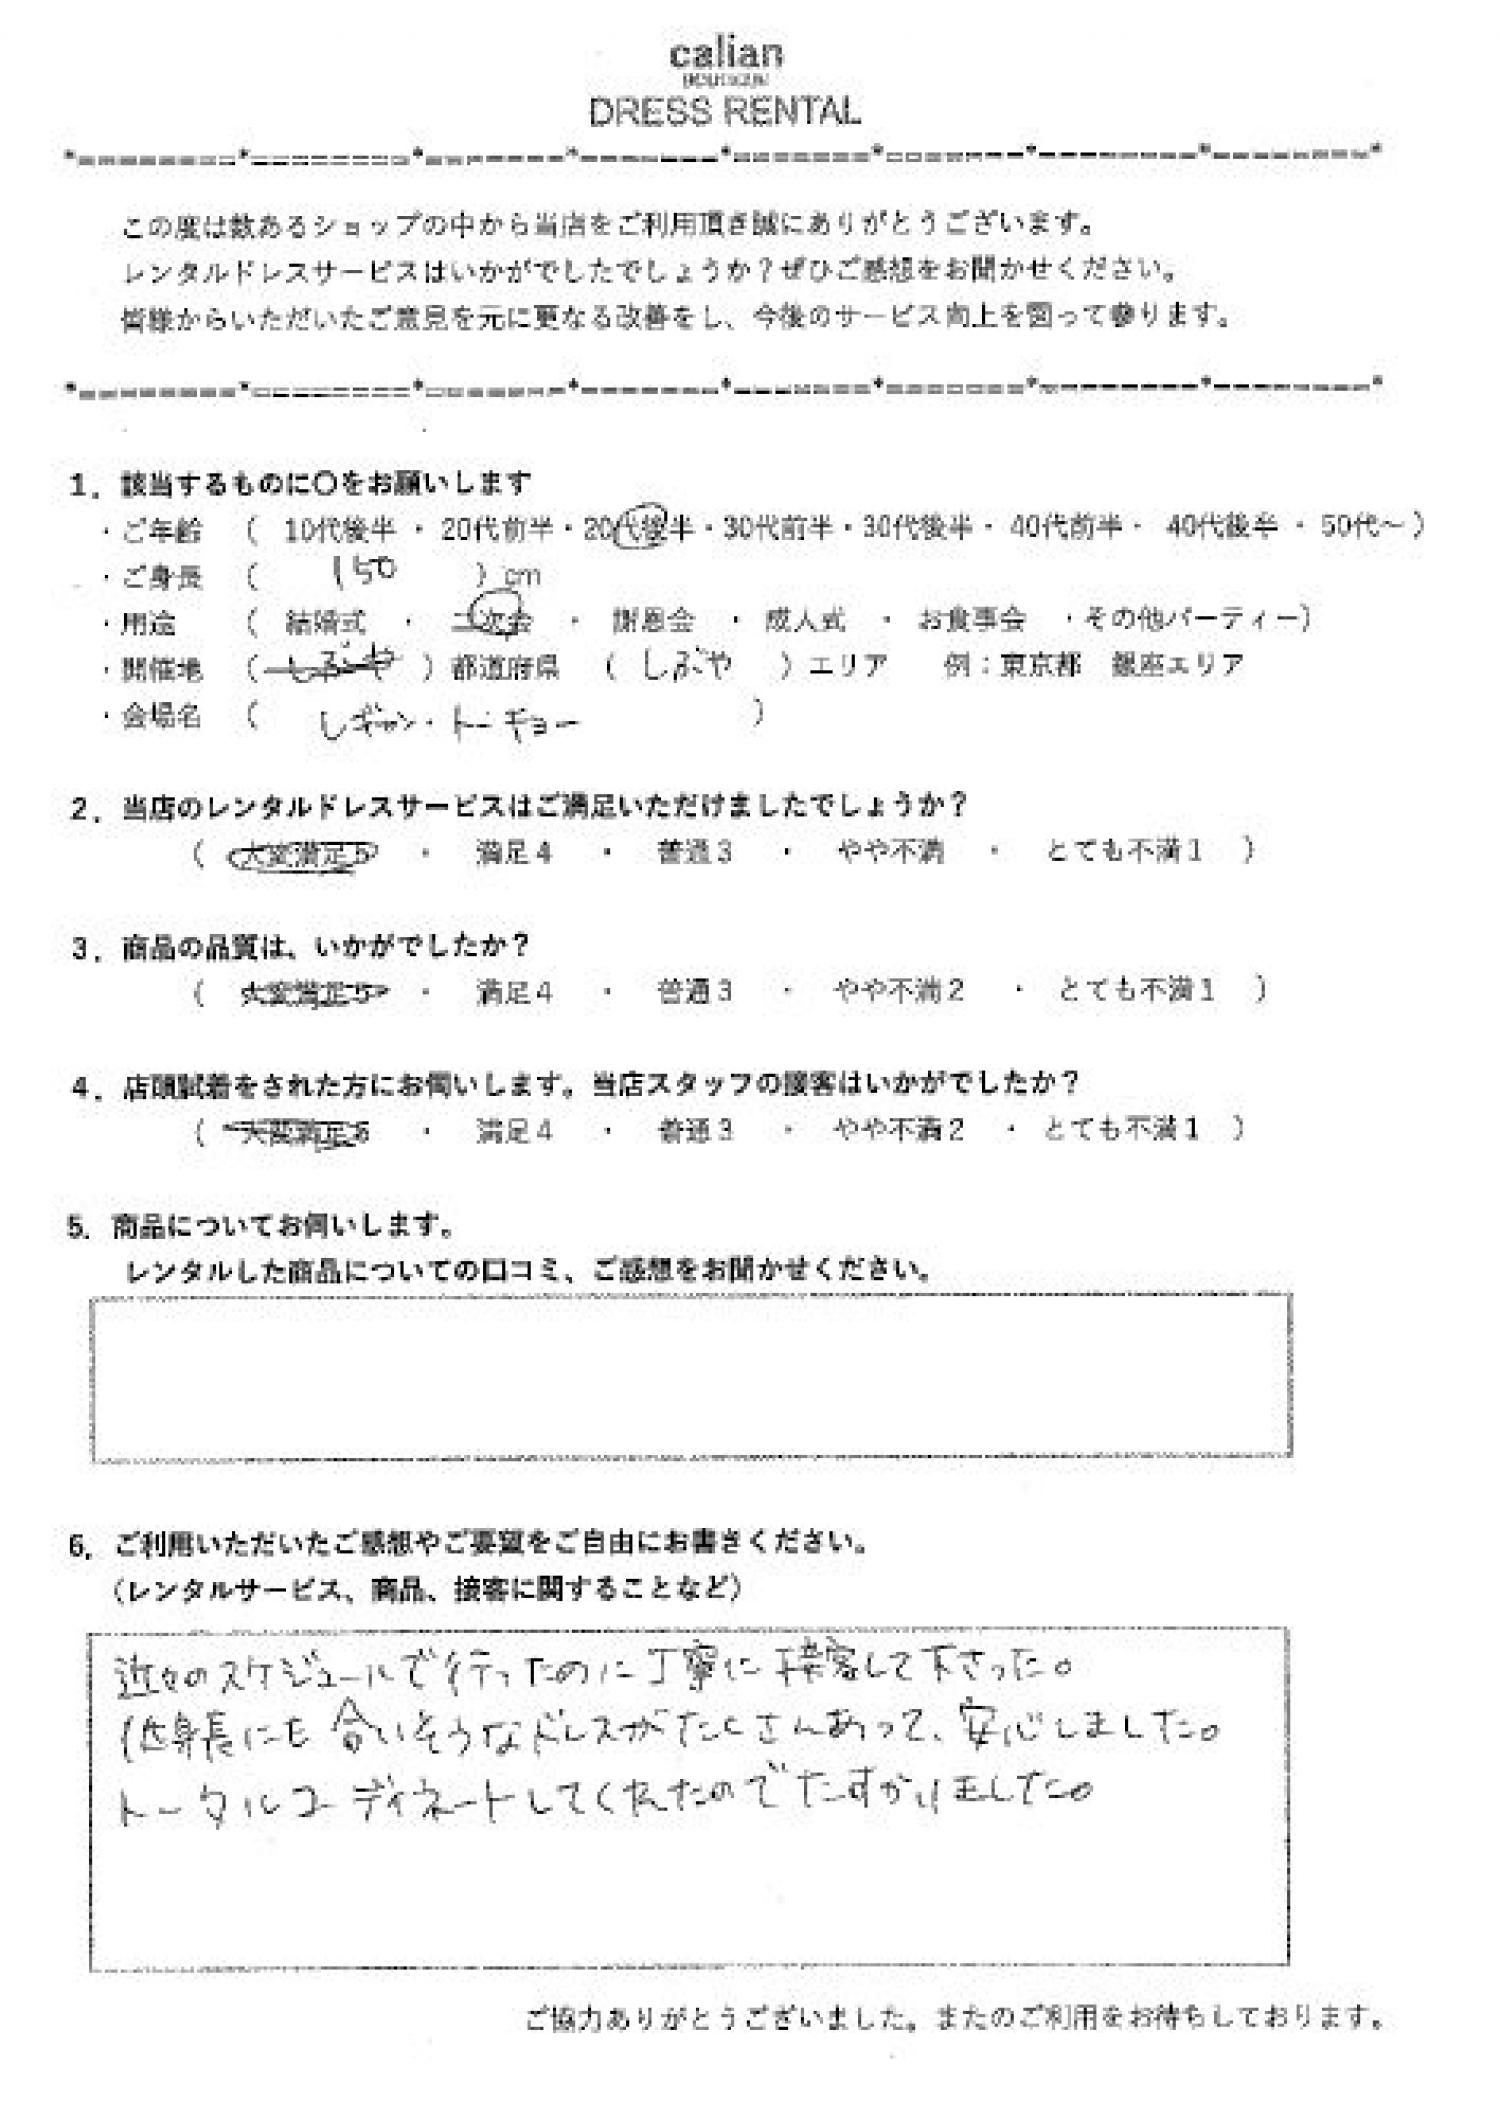 calian
DRESS RENTAL
この度は数あるショップの中から当店をご利用頂き誠にありがとうございます。
レンタルドレスサービスはいかがでしたでしょうか？ぜひご感想をお聞かせください。
皆様からいただいたご意見を元に更なる改善をし、今後のサービス向上を図って参ります。
1．該当するものに〇をお願いします
・ご年齢 （ 10代後半 ・ 20代前半・20代後半・30代前半・30代後半・ 40代前半・ 40代後半 ・ 50代～）
・ご身長 （ 150 ）cm
・用途 （ 結婚式 ・ 二次会 ・ 謝恩会 ・ 成人式 ・ お食事会 ・その他パーティー）
・開催地 （ しぶや ）都道府県 （ しぶや ）エリア 例：東京都 銀座エリア
・会場名 （ レギャン・トーキョー ）
2．当店のレンタルドレスサービスはご満足いただけましたでしょうか？
（ 大変満足5 ・ 満足4 ・ 普通3 ・ やや不満 ・ とても不満1 ）
3．商品の品質は、いかがでしたか？
（ 大変満足5 ・ 満足4 ・ 普通3 ・ やや不満2 ・ とても不満1 ）
4．店頭試着をされた方にお伺いします。当店スタッフの接客はいかがでしたか？
（ 大変満足5 ・ 満足4 ・ 普通3 ・ やや不満2 ・ とても不満1 ）
5．商品についてお伺いします。
レンタルした商品についての口コミ、ご感想をお聞かせください。
6．ご利用いただいたご感想やご要望をご自由にお書きください。
（レンタルサービス、商品、接客に関することなど）
近々のスケジュールで行ったのに丁寧に接客して下さった。
低身長にも合いそうなドレスがたくさんあって、安心しました。
トータルコーディネートしてくれたのでたすかりました。
ご協力ありがとうございました。またのご利用をお待ちしております。